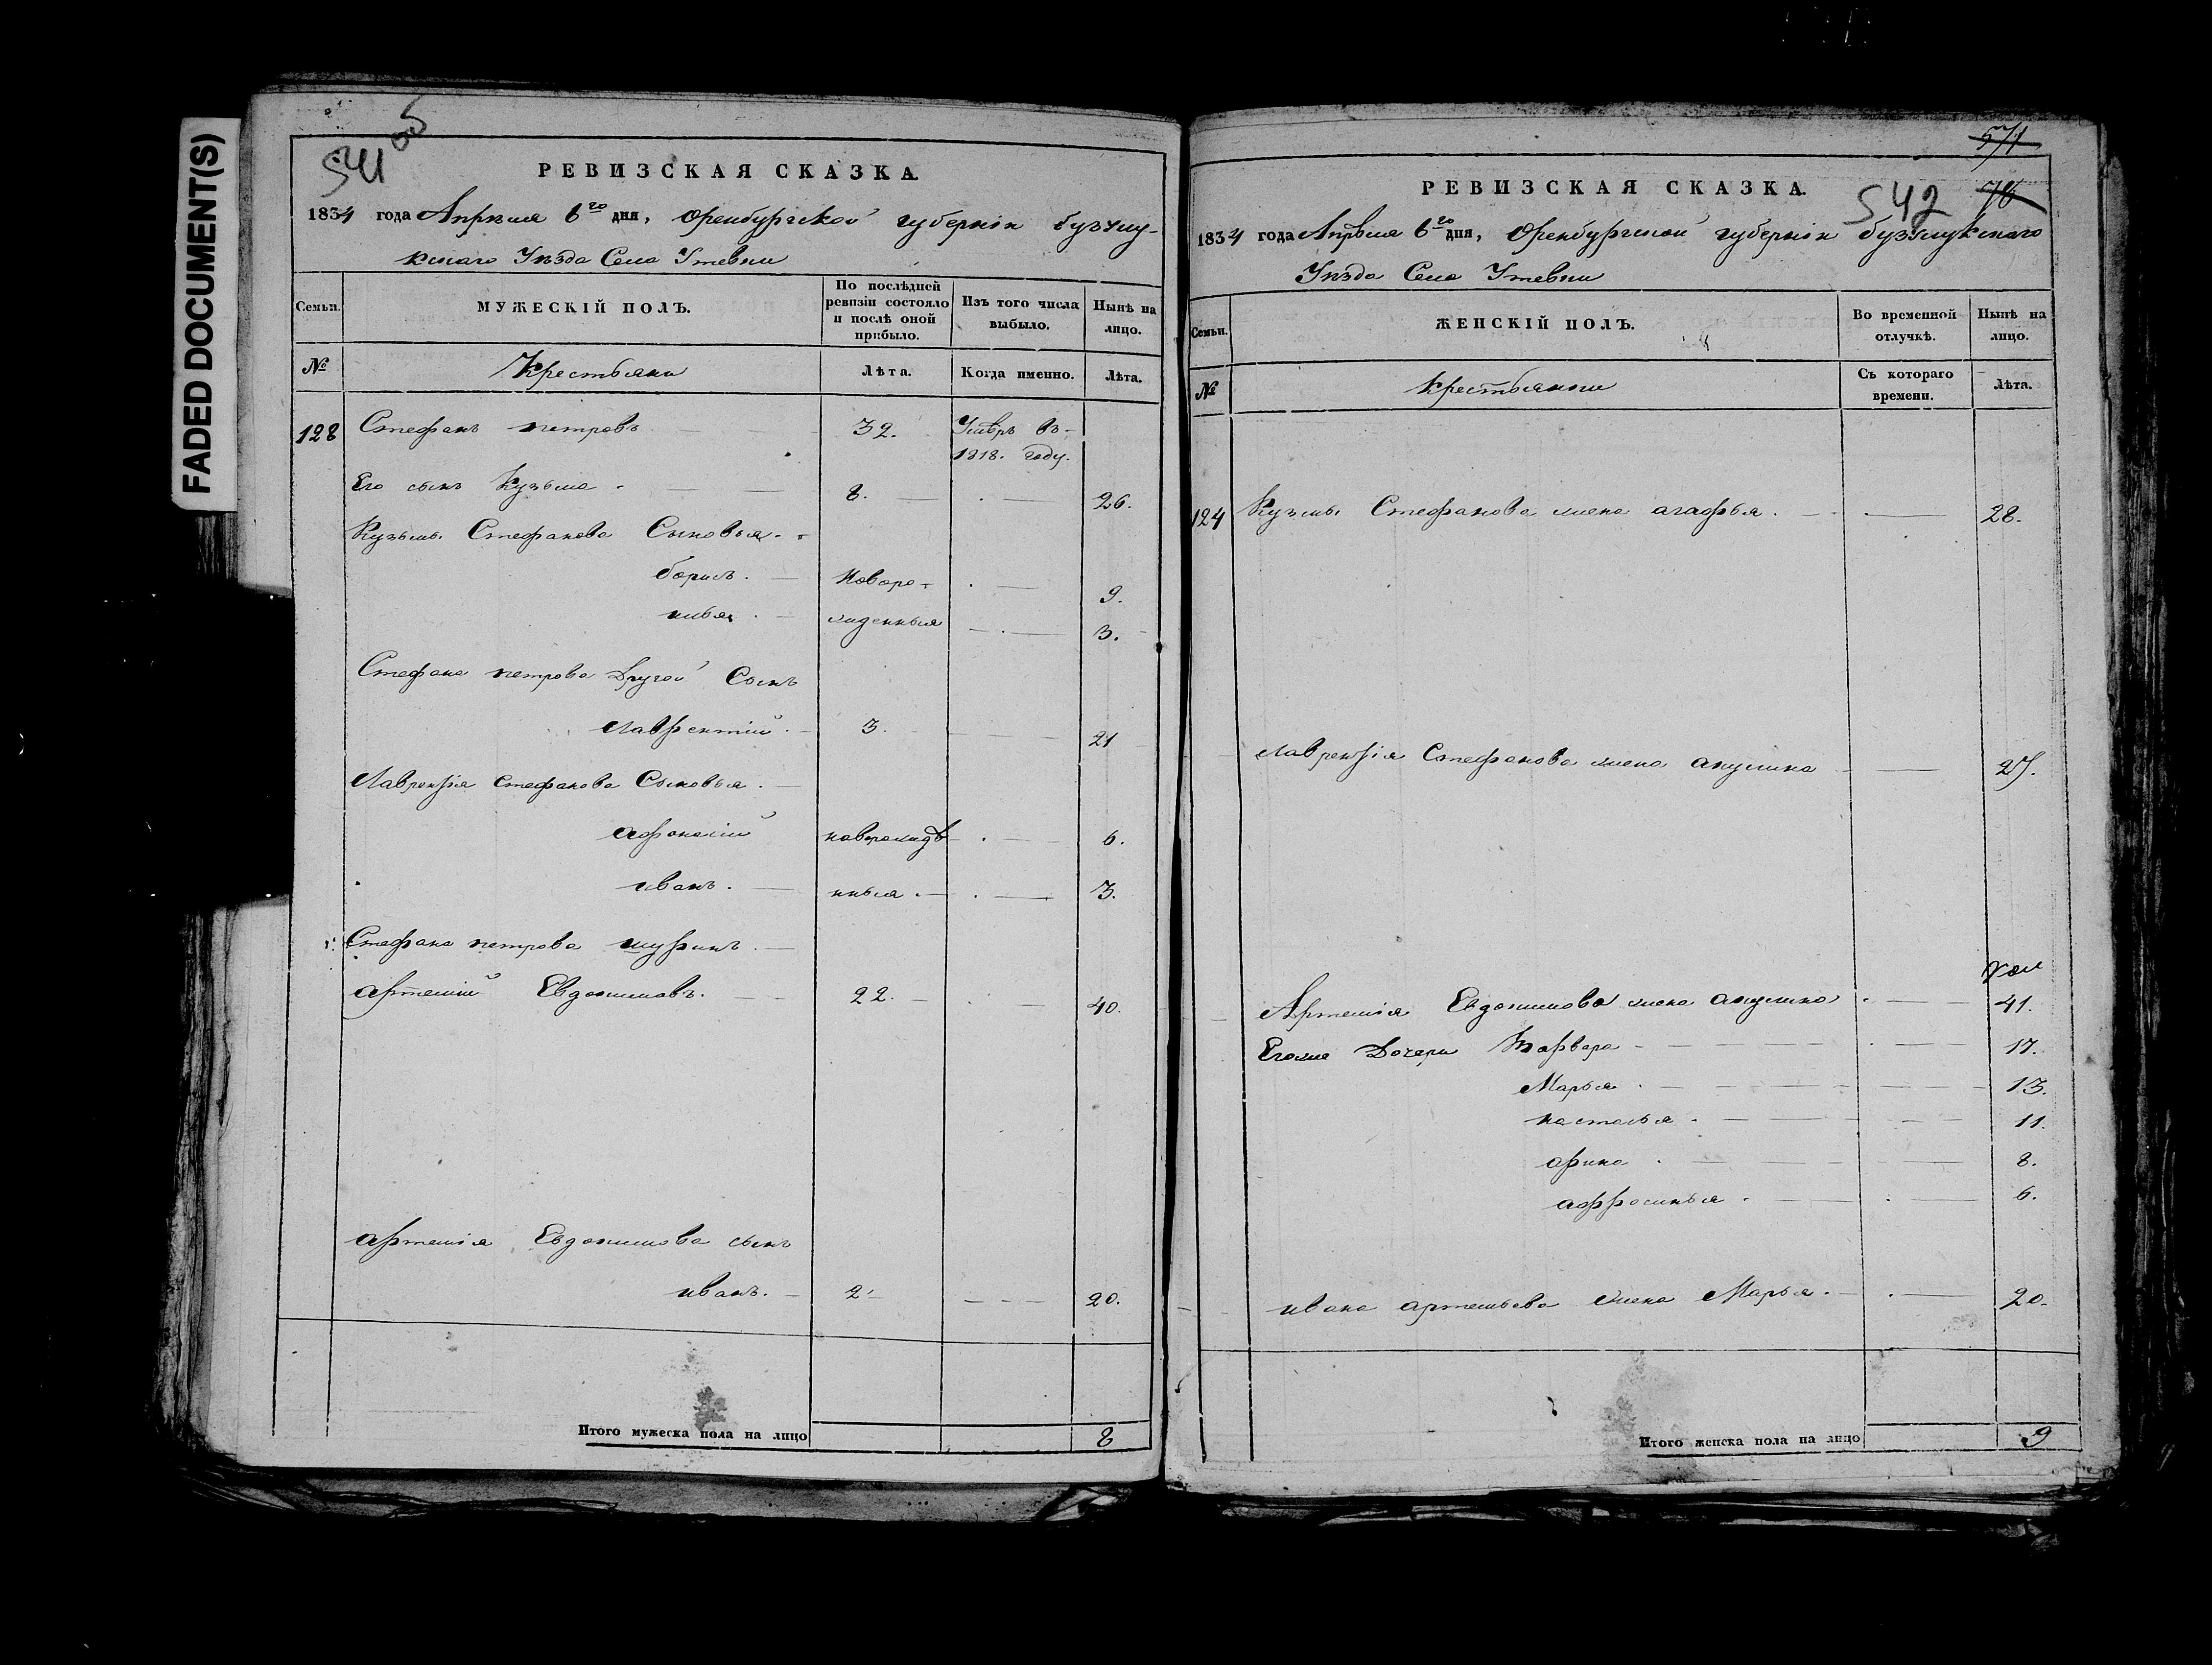 FADED DOCUMENT(S)
541 об
РЕВИЗСКАЯ СКАЗКА.
1834 года Апрѣля 6го дня, Оренбургской губерніи бузулу-
кскаго Уѣзда Села Утевки
Семьи.
МУЖЕСКІЙ ПОЛЪ.
По послѣдней ревизіи состояло и послѣ оной прибыло.
Изъ того числа выбыло.
Нынѣ на лицо.
№
Крестьяни
Лѣта.
Когда именно.
Лѣта.
128 Стефанъ петровъ 32. Умѣръ въ
1818. году.
Его сынъ Кузьма 8. 26.
Кузьмы Стефанова Сыновья
борисъ. Новоро- 9.
илья жденныя 3.
Стефана петрова Другой Сынъ
лаврентій 3. 21
Лаврентія Стефанова Сыновья
афонасій новорожде 6.
иванъ. нныя 3.
Стефана петрова шуринъ
артемій Евдокимовъ. 22. 40.
артемія Евдокимова сынъ
иванъ. 2 20.
Итого мужеска пола на лицо 8
571
542 76
РЕВИЗСКАЯ СКАЗКА.
1834 года Апрѣля 6го дня, Оренбургской губерніи бузулукскаго
Уѣзда Села Утевки
Семьи.
ЖЕНСКІЙ ПОЛЪ.
Во временной отлучкѣ.
Нынѣ на лицо.
№
Крестьянки
Съ котораго времени.
Лѣта.
124 Кузмы Стефанова жена агафья. 28.
лаврентія Стефанова жена акулина 27.
Артемія Евдокимова жена акулина 41.
Егоже Дочери Варвара 17.
Марья 13.
настасья 11.
арина 8.
аффросинья 6.
ивана артемьева жена Марья. 20.
Итого женска пола на лицо 9